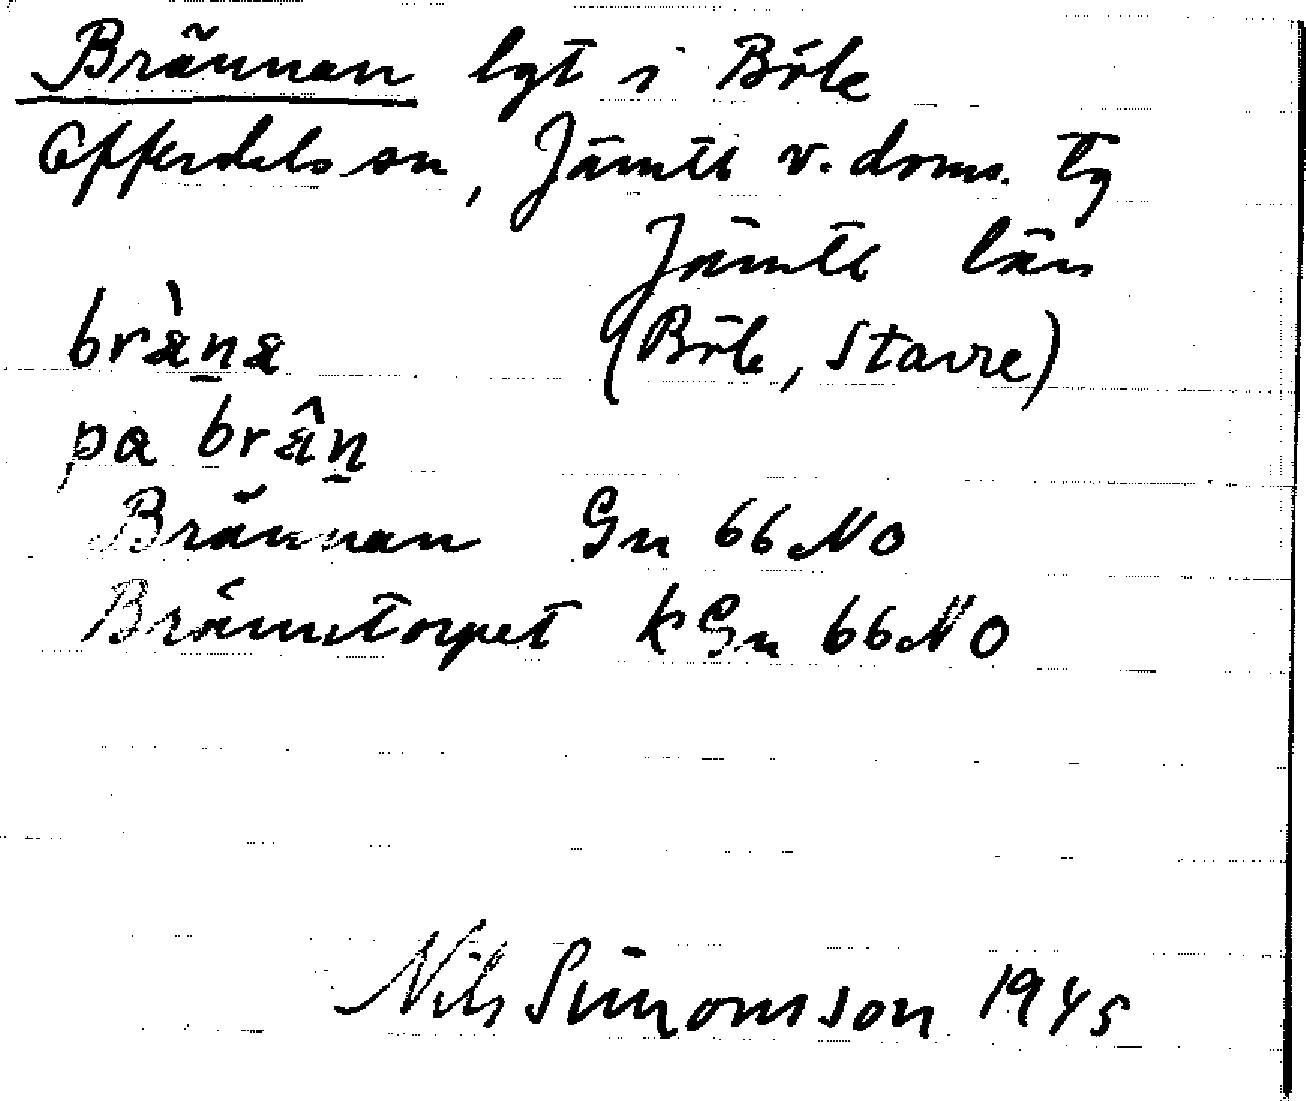 Brännan lgt i Böle
Offerdals sn, Jämtl v. doms. tg
Jämtl län
brä̀n̠a (Böle, Stavre)
pa brä̂n̠
Brännan Gn 66 NO
Bränntorpet kGn 66 NO
Nils Simonsson 1945